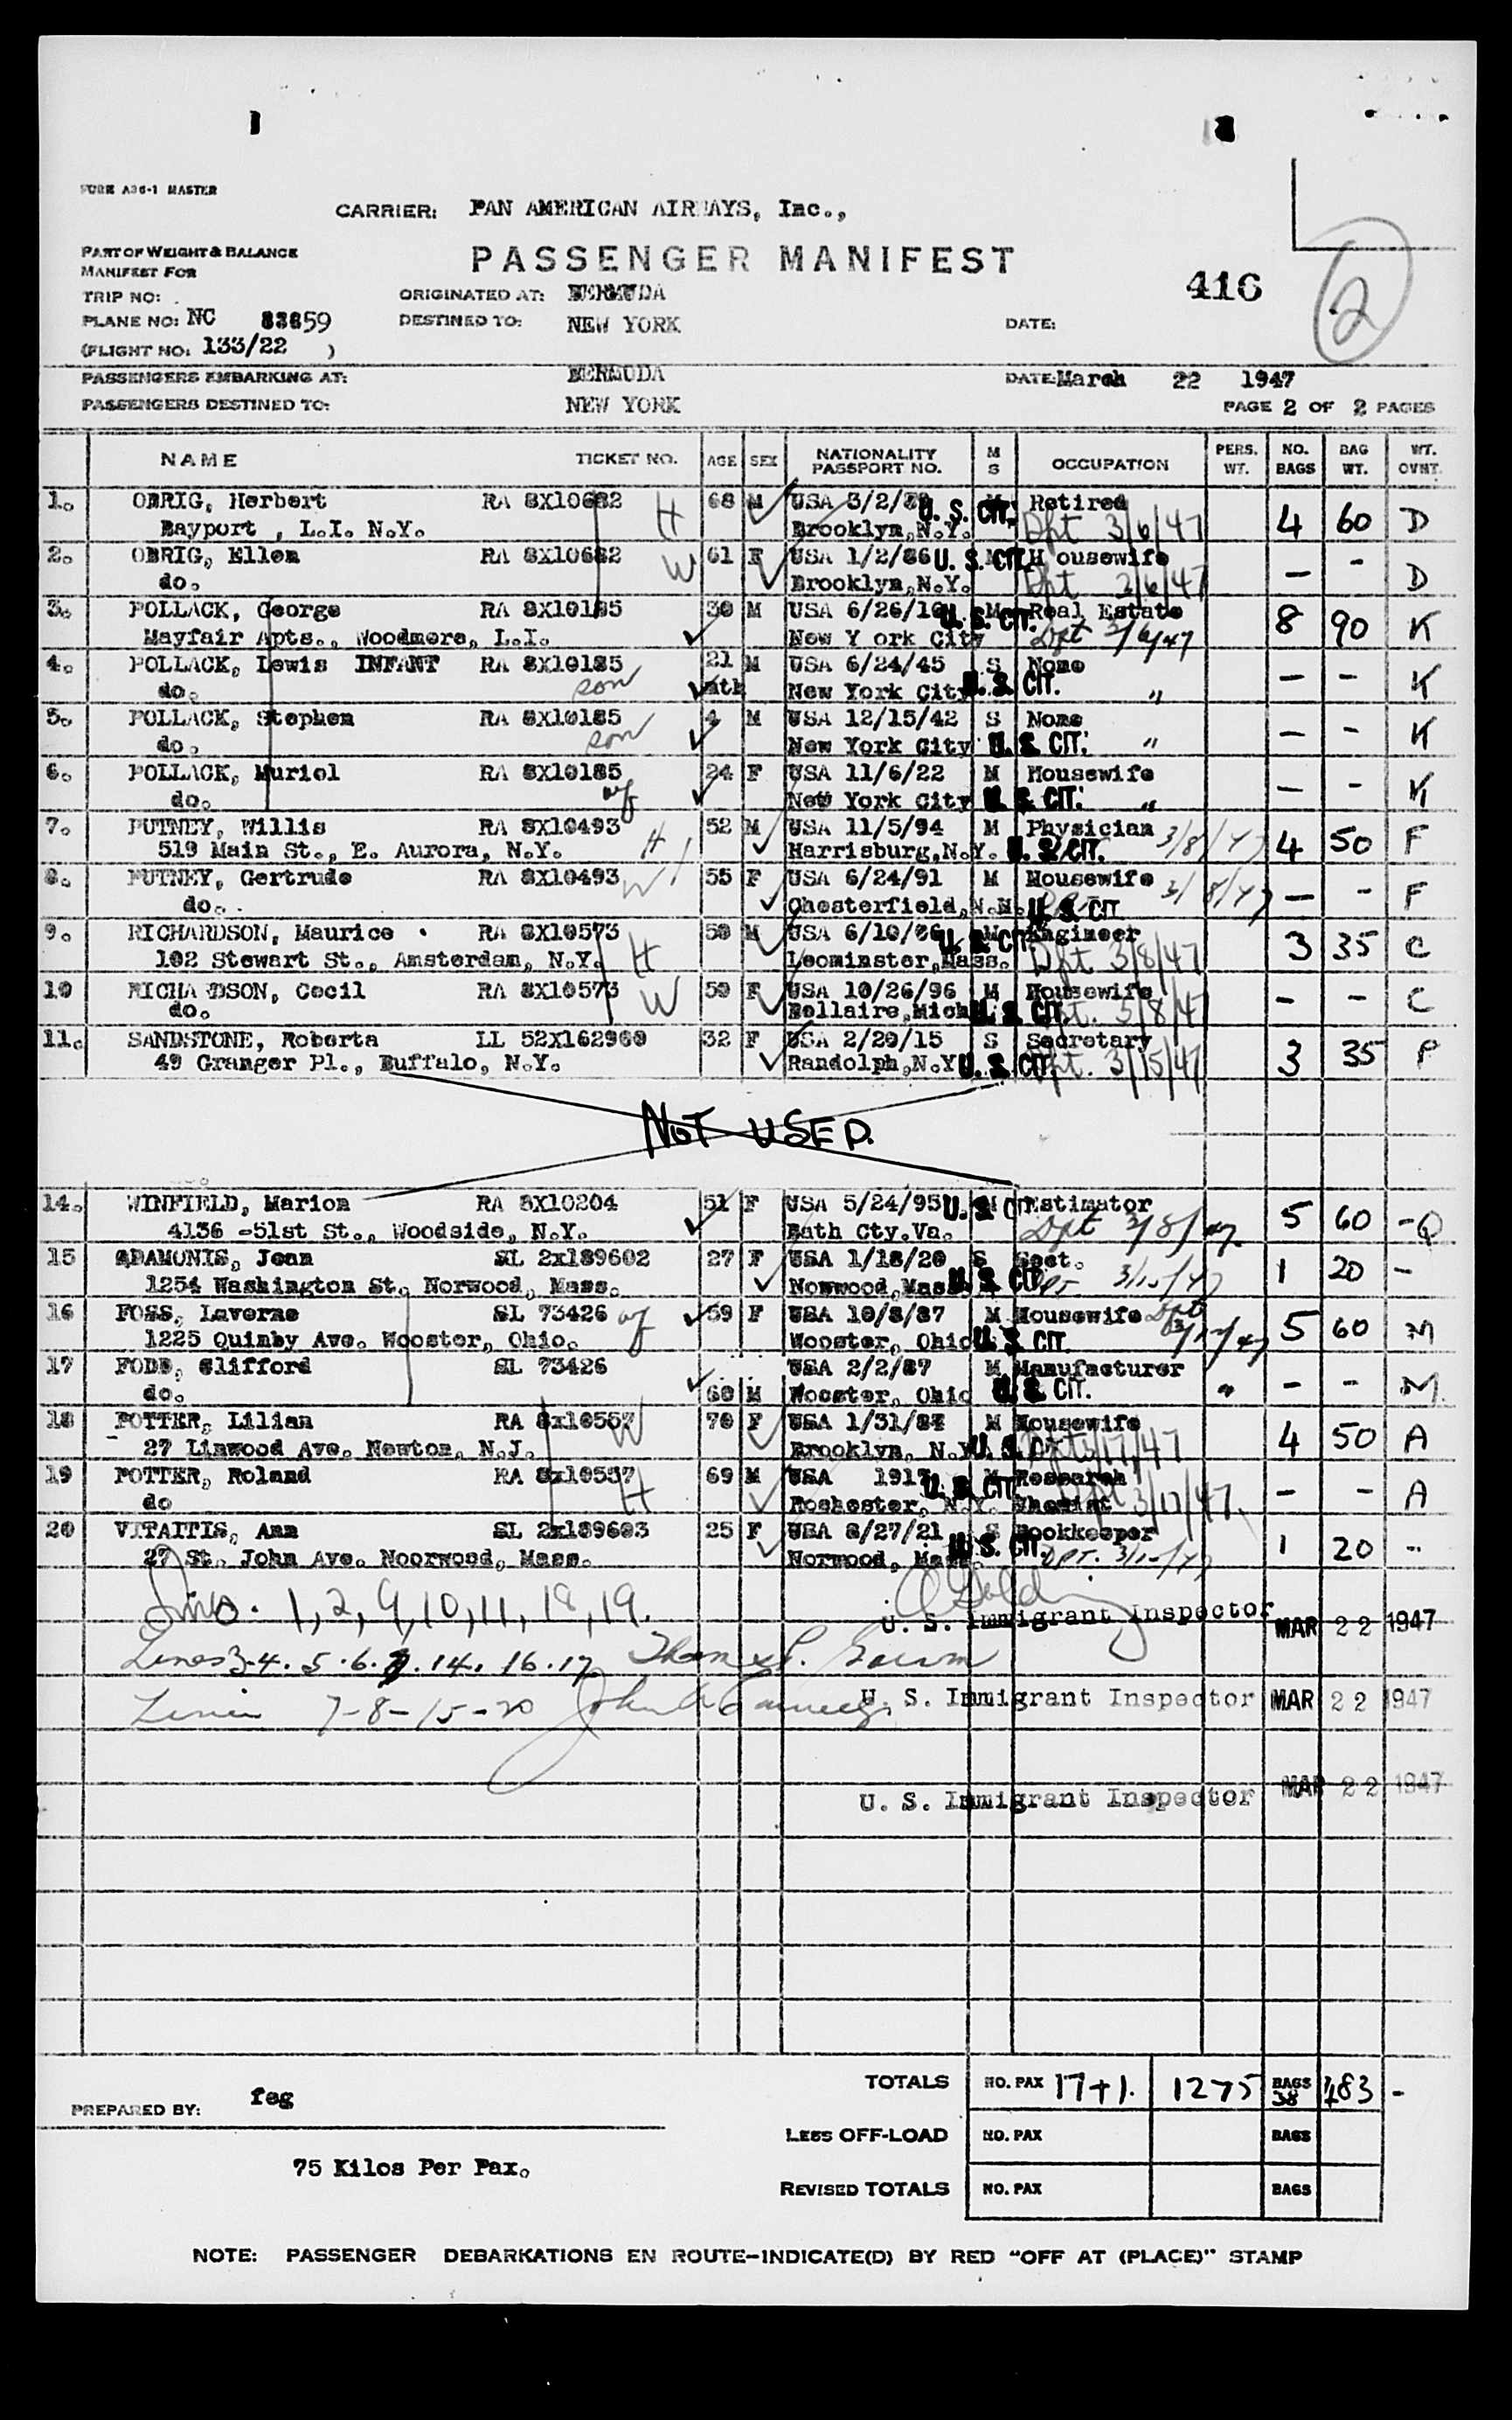 FORM A36-1 MASTER
CARRIER: PAN AMERICAN AIRWAYS, Inc.,
PART OF WEIGHT & BALANCE
MANIFEST FOR
PASSENGER MANIFEST
416
2
TRIP NO:
ORIGINATED AT: BERMUDA
PLANE NO: NC 83859
DESTINED TO: NEW YORK
DATE:
(FLIGHT NO: 133/22 )
PASSENGERS EMBARKING AT: BERMUDA DATE: March 22 1947
PASSENGERS DESTINED TO: NEW YORK
PAGE 2 OF 2 PAGES
NAME TICKET NO. AGE SEX NATIONALITY PASSPORT NO. M S OCCUPATION PERS. WT. NO. BAGS BAG WT. WT. OVNT.
1. OBRIG, Herbert RA 8X10682 H 68 M USA 3/2/ U. S. CIT. Retired 4 60 D
Bayport , L.I. N.Y. Brooklyn, N.Y. Dpt 3/6/47
2. OBRIG, Ellen RA 8X10682 W 61 F USA 1/2/86 U. S. CIT. H ousewife – – D
do. Brooklyn, N.Y. Dpt 3/6/47
3. POLLACK, George RA 8X10185 30 M USA 6/26/16 U. S. CIT. M Real Estate 8 90 K
Mayfair Apts., Woodmere, L.I. New Y ork City Dpt 3/6/47
4. POLLACK, Lewis INFANT RA 8X10185 21 M USA 6/24/45 S None – – K
do. son mth New York City U. S. CIT. "
5. POLLACK, Stephen RA 8X10185 4 M USA 12/15/42 S None – – K
do. son New York City U. S. CIT. "
6. POLLACK, Muriel RA 8X10185 24 F USA 11/6/22 M Housewife – – K
do. wf New York City U. S. CIT. "
7. PUTNEY, Willis RA 8X10493 H 52 M USA 11/5/94 M Physician 3/8/47 4 50 F
519 Main St., E. Aurora, N.Y. Harrisburg, N.Y. U. S. CIT.
8. PUTNEY, Gertrude RA 8X10493 W 55 F USA 6/24/91 M Housewife 3/8/47 – – F
do. Chesterfield, N.H. U. S. CIT
9. RICHARDSON, Maurice RA 8X10573 H 50 M USA 6/10/ U. S. CIT. M Engineer 3 35 C
102 Stewart St., Amsterdam, N.Y. Leominster, Mass. Dpt 3/8/47
10 RICHA DSON, Cecil RA 8X10573 W 50 F USA 10/26/96 M Housewife – – C
do. Bellaire, Mich U. S. CIT. Dpt. 3/8/47
11. SANDSTONE, Roberta LL 52X162960 32 F USA 2/20/15 S Secretary 3 35 P
49 Granger Pl., Buffalo, N.Y. Randolph, N.Y U. S. CIT. Dpt. 3/15/47
NOT USED.
14. WINFIELD, Marion RA 8X10204 51 F USA 5/24/95 U. S. CIT Estimator 5 60 -Q
4136 -51st St., Woodside, N.Y. Bath Cty. Va. Dpt 3/8/47
15 ADAMONIS, Jean SL 2x189602 27 F USA 1/18/20 S Sect. 1 20 –
1254 Washington St. Norwood, Mass. Norwood, Mass U. S. CIT. DPT. 3/15/47
16 FOSS, Laverne SL 73426 wf 59 F USA 10/8/87 M Housewife Dpt 5 60 M
1225 Quimby Ave. Wooster, Ohio. Wooster, Ohio U. S. CIT. 3/15/47
17 FODS, Clifford SL 73426 USA 2/2/87 M Manufacturer – – M
do. 60 M Wooster, Ohio U. S. CIT. "
18 POTTER, Lilian RA 8x10557 W 70 F USA 1/31/ M Housewife 4 50 A
27 Linwood Ave. Newton, N.J. Brooklyn, N.Y U. S. CIT Dpt 3/17/47
19 POTTER, Roland RA 8x10557 H 69 M USA 1917 U. S. CIT. M Research – – A
do Rochester, N.Y. Chemist Dpt 3/17/47
20 VITAITIS, Ann SL 2x189603 25 F USA 8/27/21 S Bookkeeper 1 20 –
27 St. John Ave. Noorwood, Mass. Norwood, Mass. U. S. CIT. DPT. 3/15/47
Lines. 1, 2, 9, 10, 11, 18, 19.
U. S. Immigrant Inspector MAR 22 1947
Lines 3-4. 5. 6. 14. 16. 17 Thomas P.
Lines 7-8-15-20 John U. S. Immigrant Inspector MAR 22 1947
U. S. Immigrant Inspector MAR 22 1947
TOTALS NO. PAX 17+1. 1275 BAGS 38 483 –
PREPARED BY: feg
LESS OFF-LOAD NO. PAX BAGS
75 Kilos Per Pax.
REVISED TOTALS NO. PAX BAGS
NOTE: PASSENGER DEBARKATIONS EN ROUTE-INDICATE(D) BY RED "OFF AT (PLACE)" STAMP